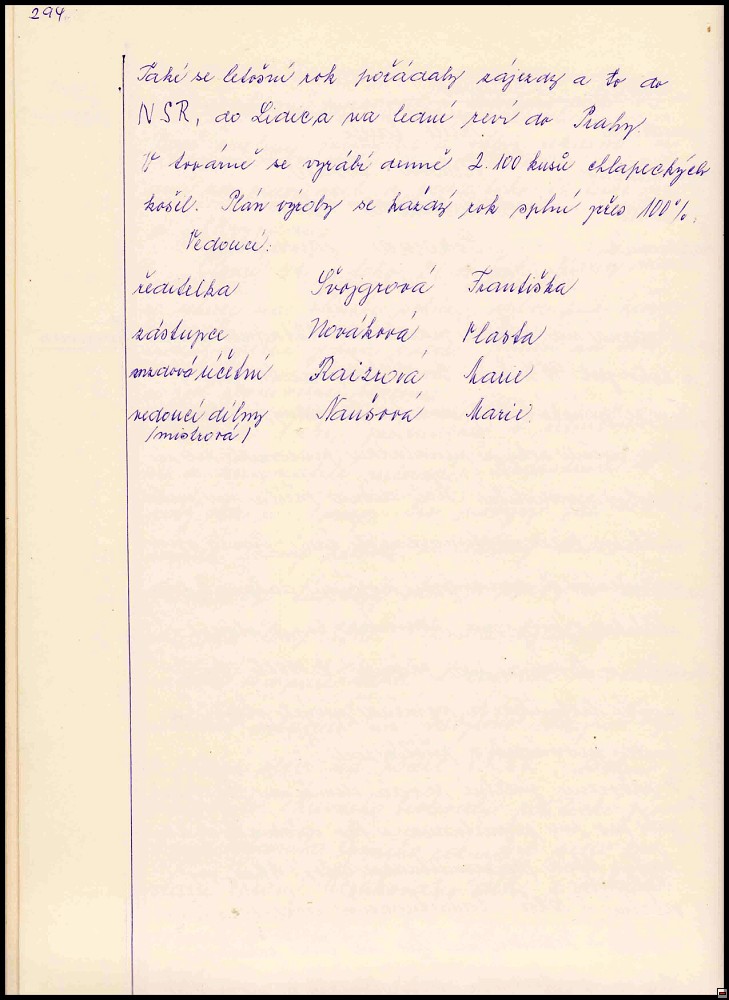 294.
Také se letošní rok pořádaly zájezdy a to do
NSR, do Lidic, a na lední revi do Prahy.
V továrně se vyrábí denně 2.100 kusů chlapeckých
košil. Plán výroby se každý rok splní přes 100%.
Vedoucí:
ředitelka Švojgrová Františka
zástupce Nováková Vlasta
mzdová účetní Raizrová Marie
vedoucí dílny Naušová Marie.
/mistrová/